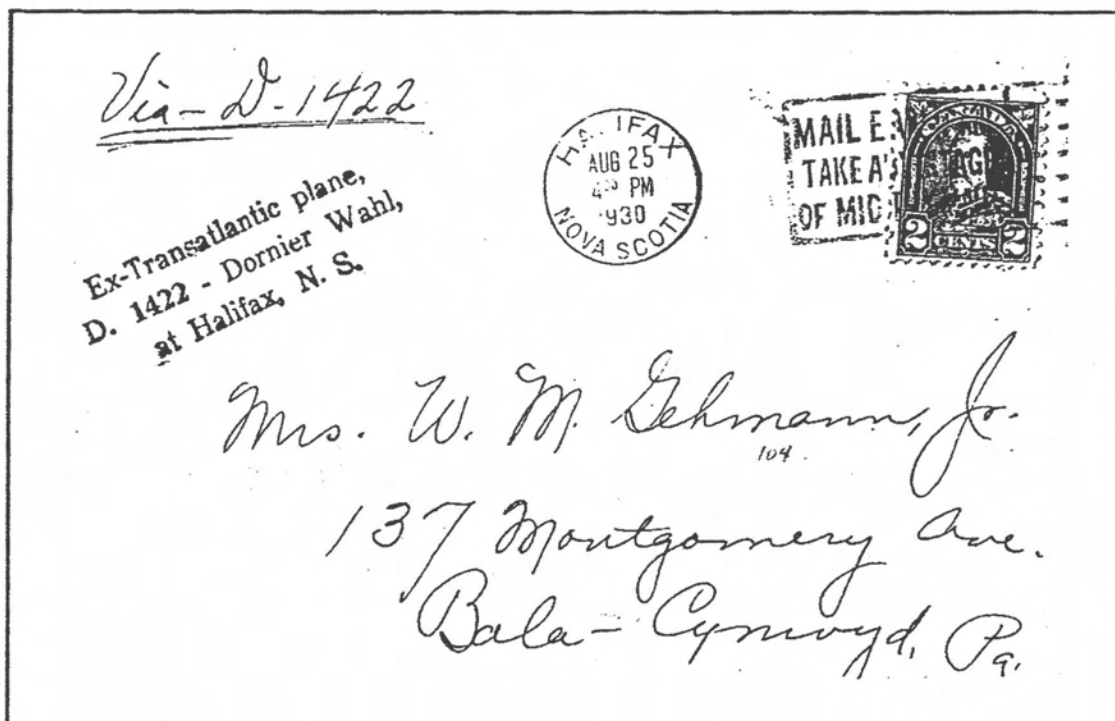 Via - D - 1422
Ex-Transatlantic plane,
D. 1422 - Dornier Wahl,
at Halifax, N. S.
HALIFAX
AUG 25
4 PM
1930
NOVA SCOTIA
MAIL E
TAKE A
OF MID
2 CENTS 2
Mrs. W. M. Gehmann, Jr.
104
137 Montgomery Ave.
Bala - Cynwyd, Pa.